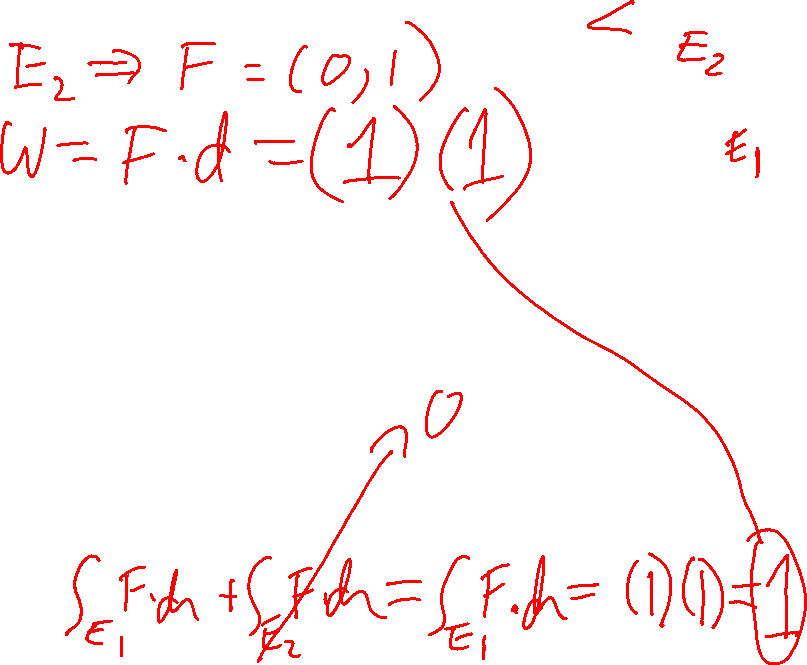 <
E₂ ⇒ F = (0,1)
E₂
W = F·d = (1)(1)
E₁
0
∫_E₁ F·dr + ∫_E₂ F·dr = ∫_E₁ F·dr = (1)(1) = 1